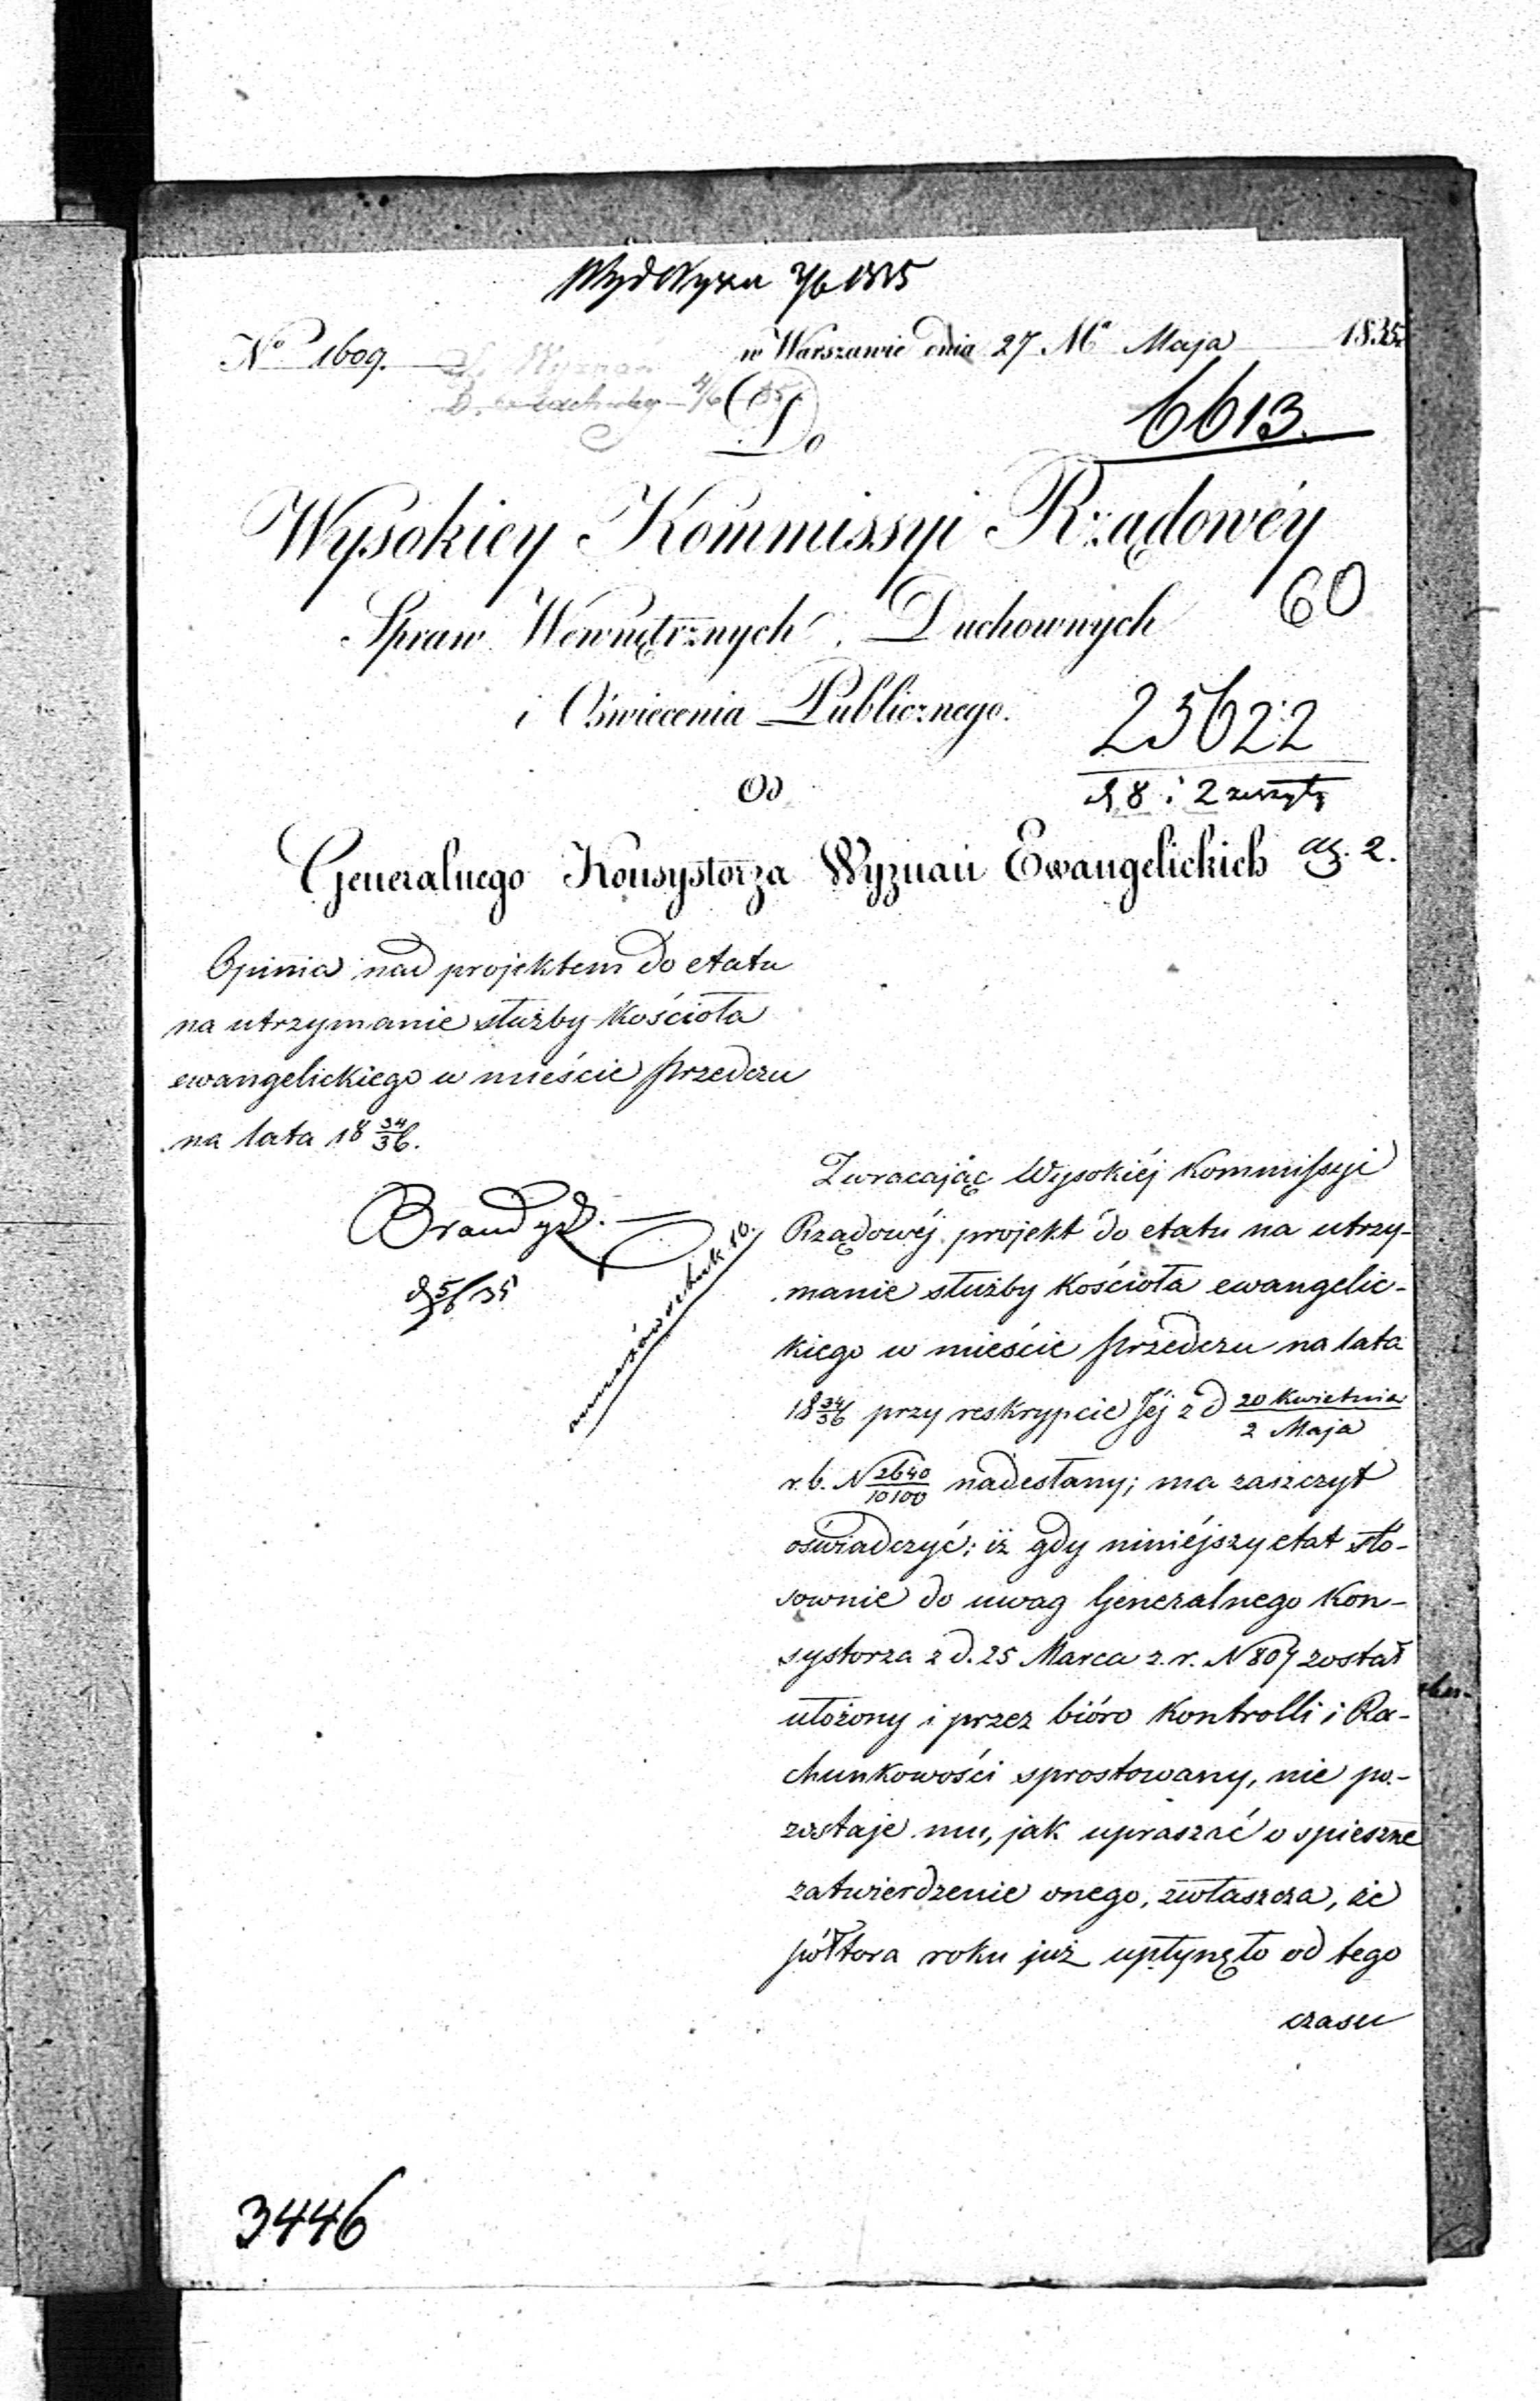 Wyd Wyzn 3/6 1835
No 1609.
w Warszawie dnia 27 Mca Maja 1835
D. Wyznań
4/6 35
Do
6613.
Wysokiey Kommissyi Rządowéy
60
Spraw Wewnętrznych Duchownych
i Oświecenia Publicznego.
25622
Od
8 i 2 zeszyty
Generalnego Konsystorza Wyznań Ewangelickich
2.
Opinia nad projektem do etatu
na utrzymanie służby kościoła
ewangelickiego w mieście Przedczu
na lata 18 34/36.
Brandys.
d 5/6 35
10.
Zwracając Wysokiéj Kommissyi
Rządowéj projekt do etatu na utrzy-
manie służby kościoła ewangelic-
kiego w mieście Przedczu na lata
18 34/36 przy reskrypcie Jéj z d 20 Kwietnia/2 Maja
r. b. N 2640/10100 nadesłany; ma zaszczyt
oświadczyć: iż gdy niniéjszy etat sto-
sownie do uwag Generalnego Kon-
systorza z d. 25 Marca z. r. N 807 został
ułożony i przez bióro Kontrolli i Ra-
chunkowości sprostowany, nie po-
zostaje mu, jak upraszać o spieszne
zatwierdzenie onego, zwłaszcza, że
półtora roku już upłynęło od tego
czasu
3446